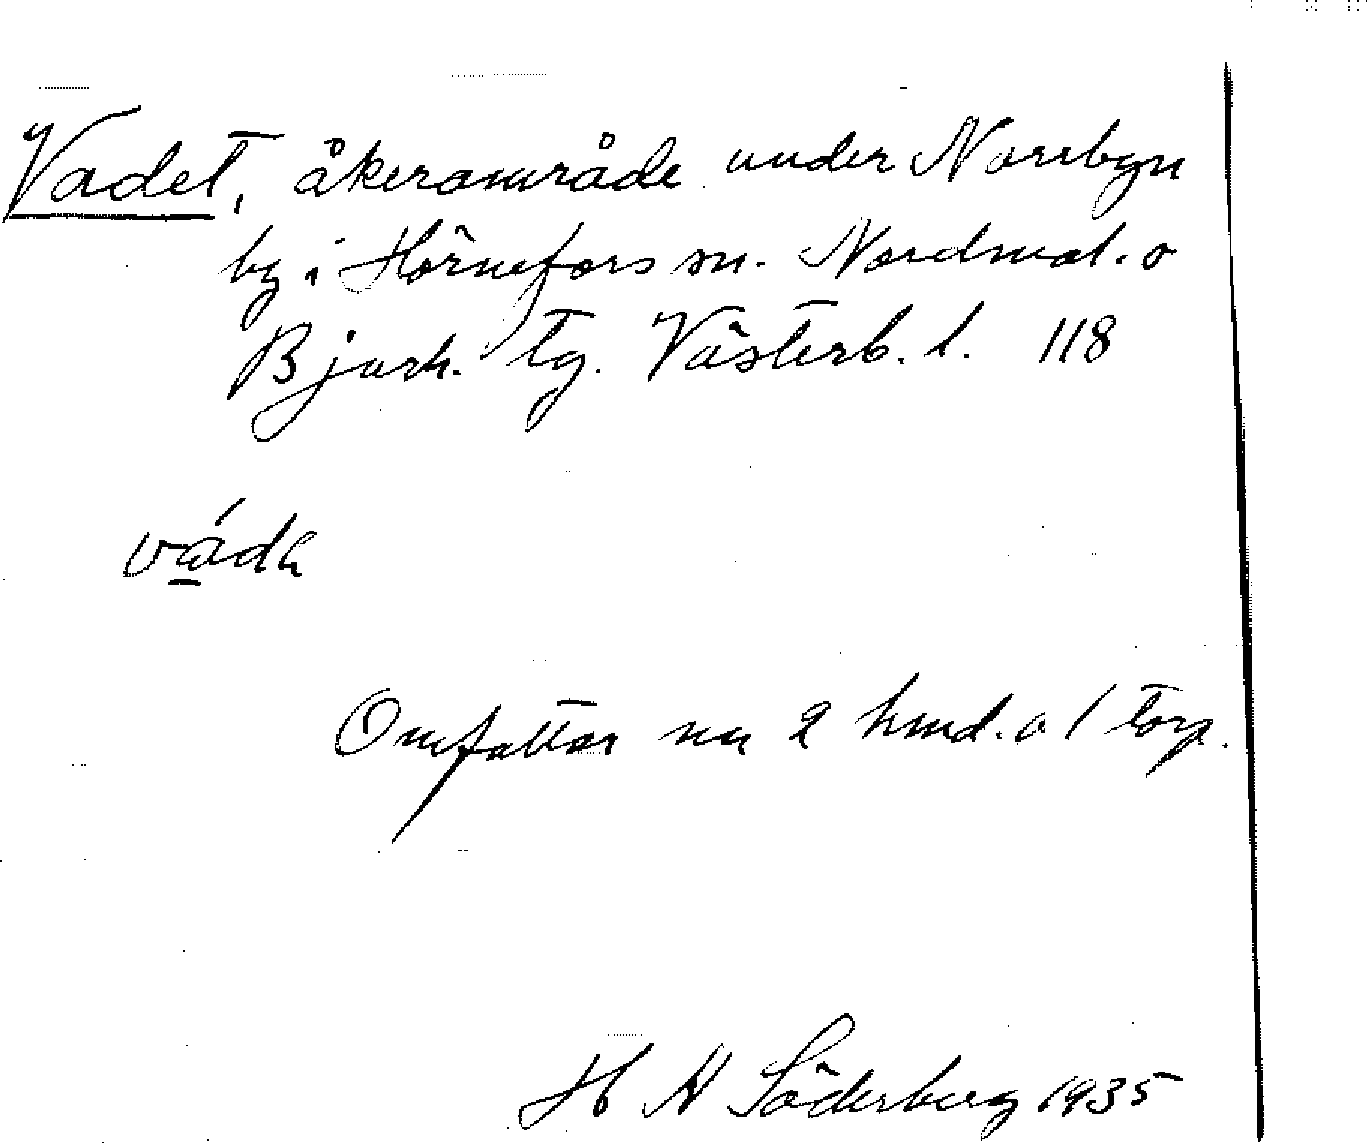 Vadet, åkerområde under Norrbyn
by i Hörnefors sn. Nordmal. o
Bjurh. tg. Västerb. l. 118
Omfattar nu 2 hmd. o 1 torp.
H H Söderberg 1935